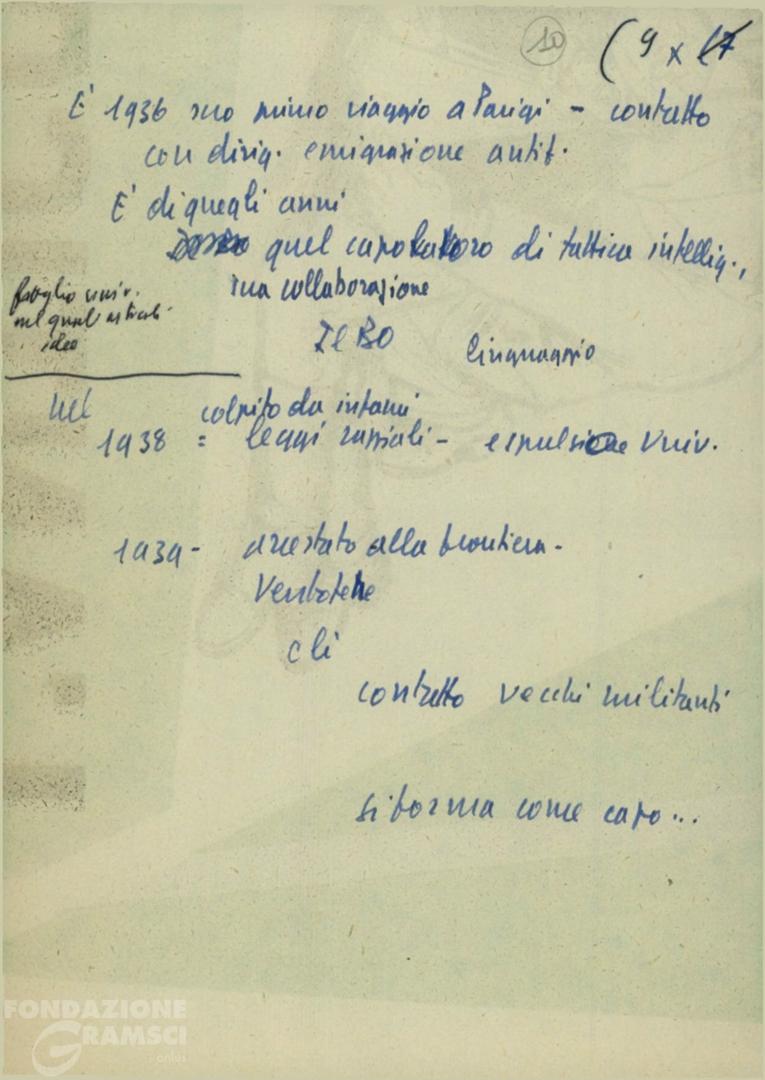 10
( 9 x 17
È 1936 suo primo viaggio a Parigi - contatto
con dirig. emigrazione antif.
È di quegli anni
quel capolavoro di tattica intellig.,
sua collaborazione
Il BO linguaggio
foglio univ.
nel quale articoli
idee
nel colpito da infami
1938 = leggi razziali - espulsione Univ.
1939 - arrestato alla frontiera -
Ventotene
cli
contatto vecchi militanti
si forma come capo...
FONDAZIONE
GRAMSCI
onlus